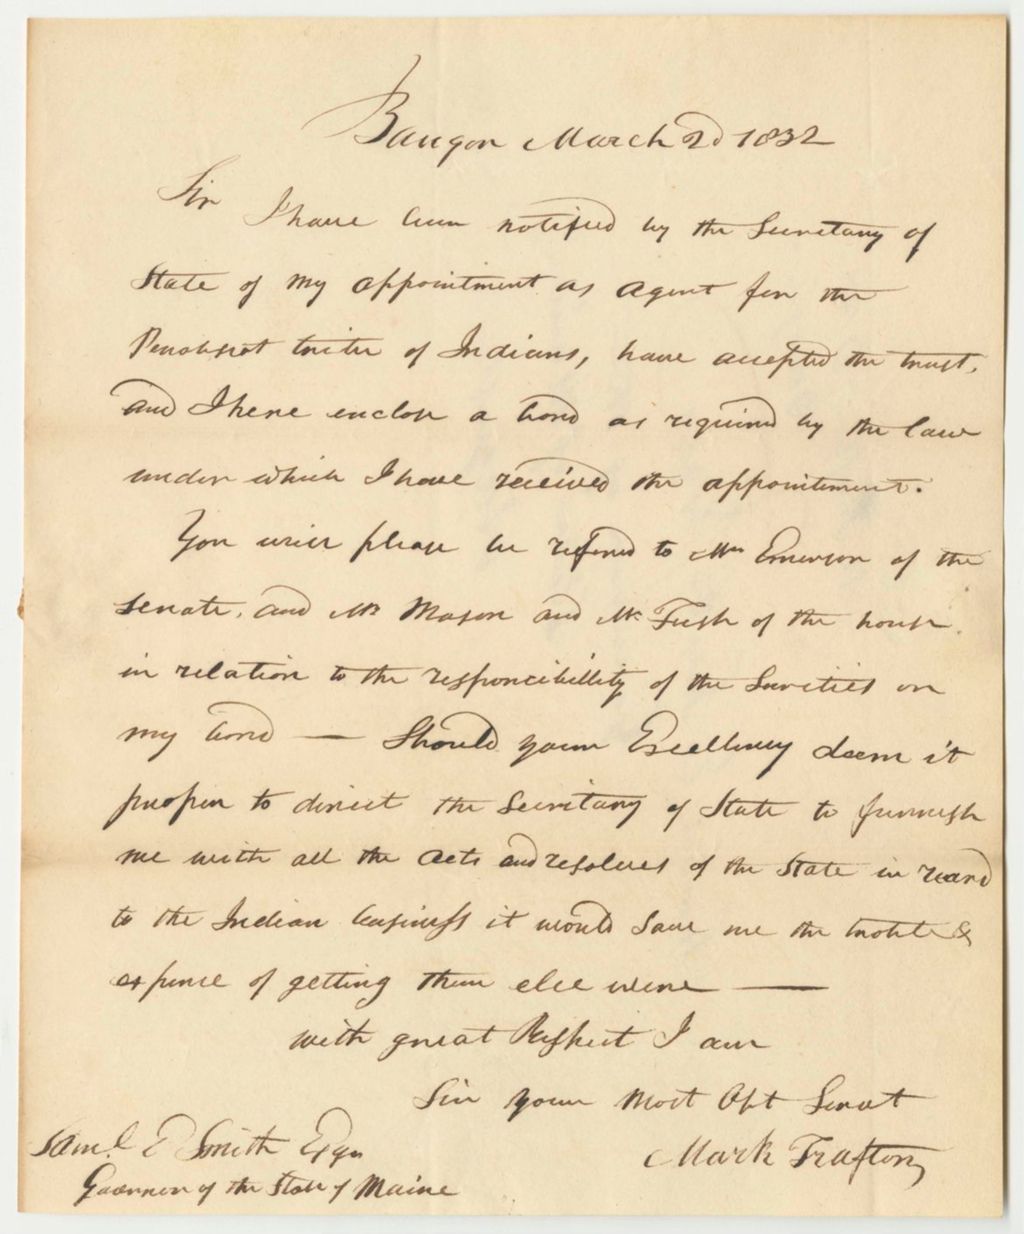 Bangor March 2d 1832
Sir
I have been notified by the Secretary of
State of my appointment as agent for the
Penobscot tribe of Indians, have accepted the trust,
and I here enclose a bond as required by the law
under which I have received the appointment.
You will please be refered to Mr Emerson of the
Senate, and Mr Mason and Mr Fish of the house
in relation to the responcibillity of the Sureties on
my bond — Should your Excellency deem it
proper to direct the Secretary of State to furnish
me with all the acts and resolves of the State in
to the Indian business it would save me the &
expence of getting them else were —
with great Respect I am
Sir your most Obt Servt
Mark Trafton
Saml. E Smith Esqr
Governor of the State of Maine